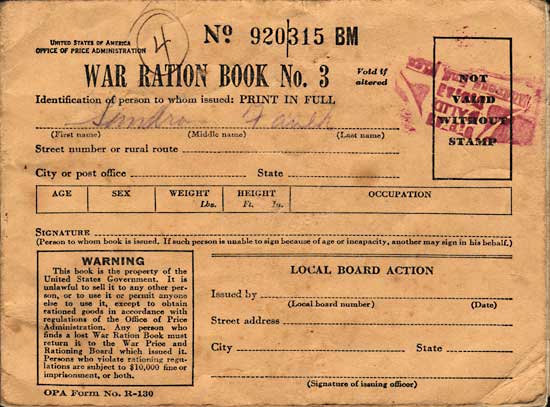 UNITED STATES OF AMERICA
OFFICE OF PRICE ADMINISTRATION
4
No 920315 BM
WAR RATION BOOK No. 3
Void if
altered
NOT
VALID
WITHOUT
STAMP
Identification of person to whom issued: PRINT IN FULL
Sandra
(First name) (Middle name) (Last name)
Street number or rural route
City or post office State
AGE SEX WEIGHT HEIGHT OCCUPATION
Lbs. Ft. In.
SIGNATURE
(Person to whom book is issued. If such person is unable to sign because of age or incapacity, another may sign in his behalf.)
WARNING
This book is the property of the
United States Government. It is
unlawful to sell it to any other per-
son, or to use it or permit anyone
else to use it, except to obtain
rationed goods in accordance with
regulations of the Office of Price
Administration. Any person who
finds a lost War Ration Book must
return it to the War Price and
Rationing Board which issued it.
Persons who violate rationing regu-
lations are subject to $10,000 fine or
imprisonment, or both.
OPA Form No. R-130
LOCAL BOARD ACTION
Issued by
(Local board number) (Date)
Street address
City State
(Signature of issuing officer)